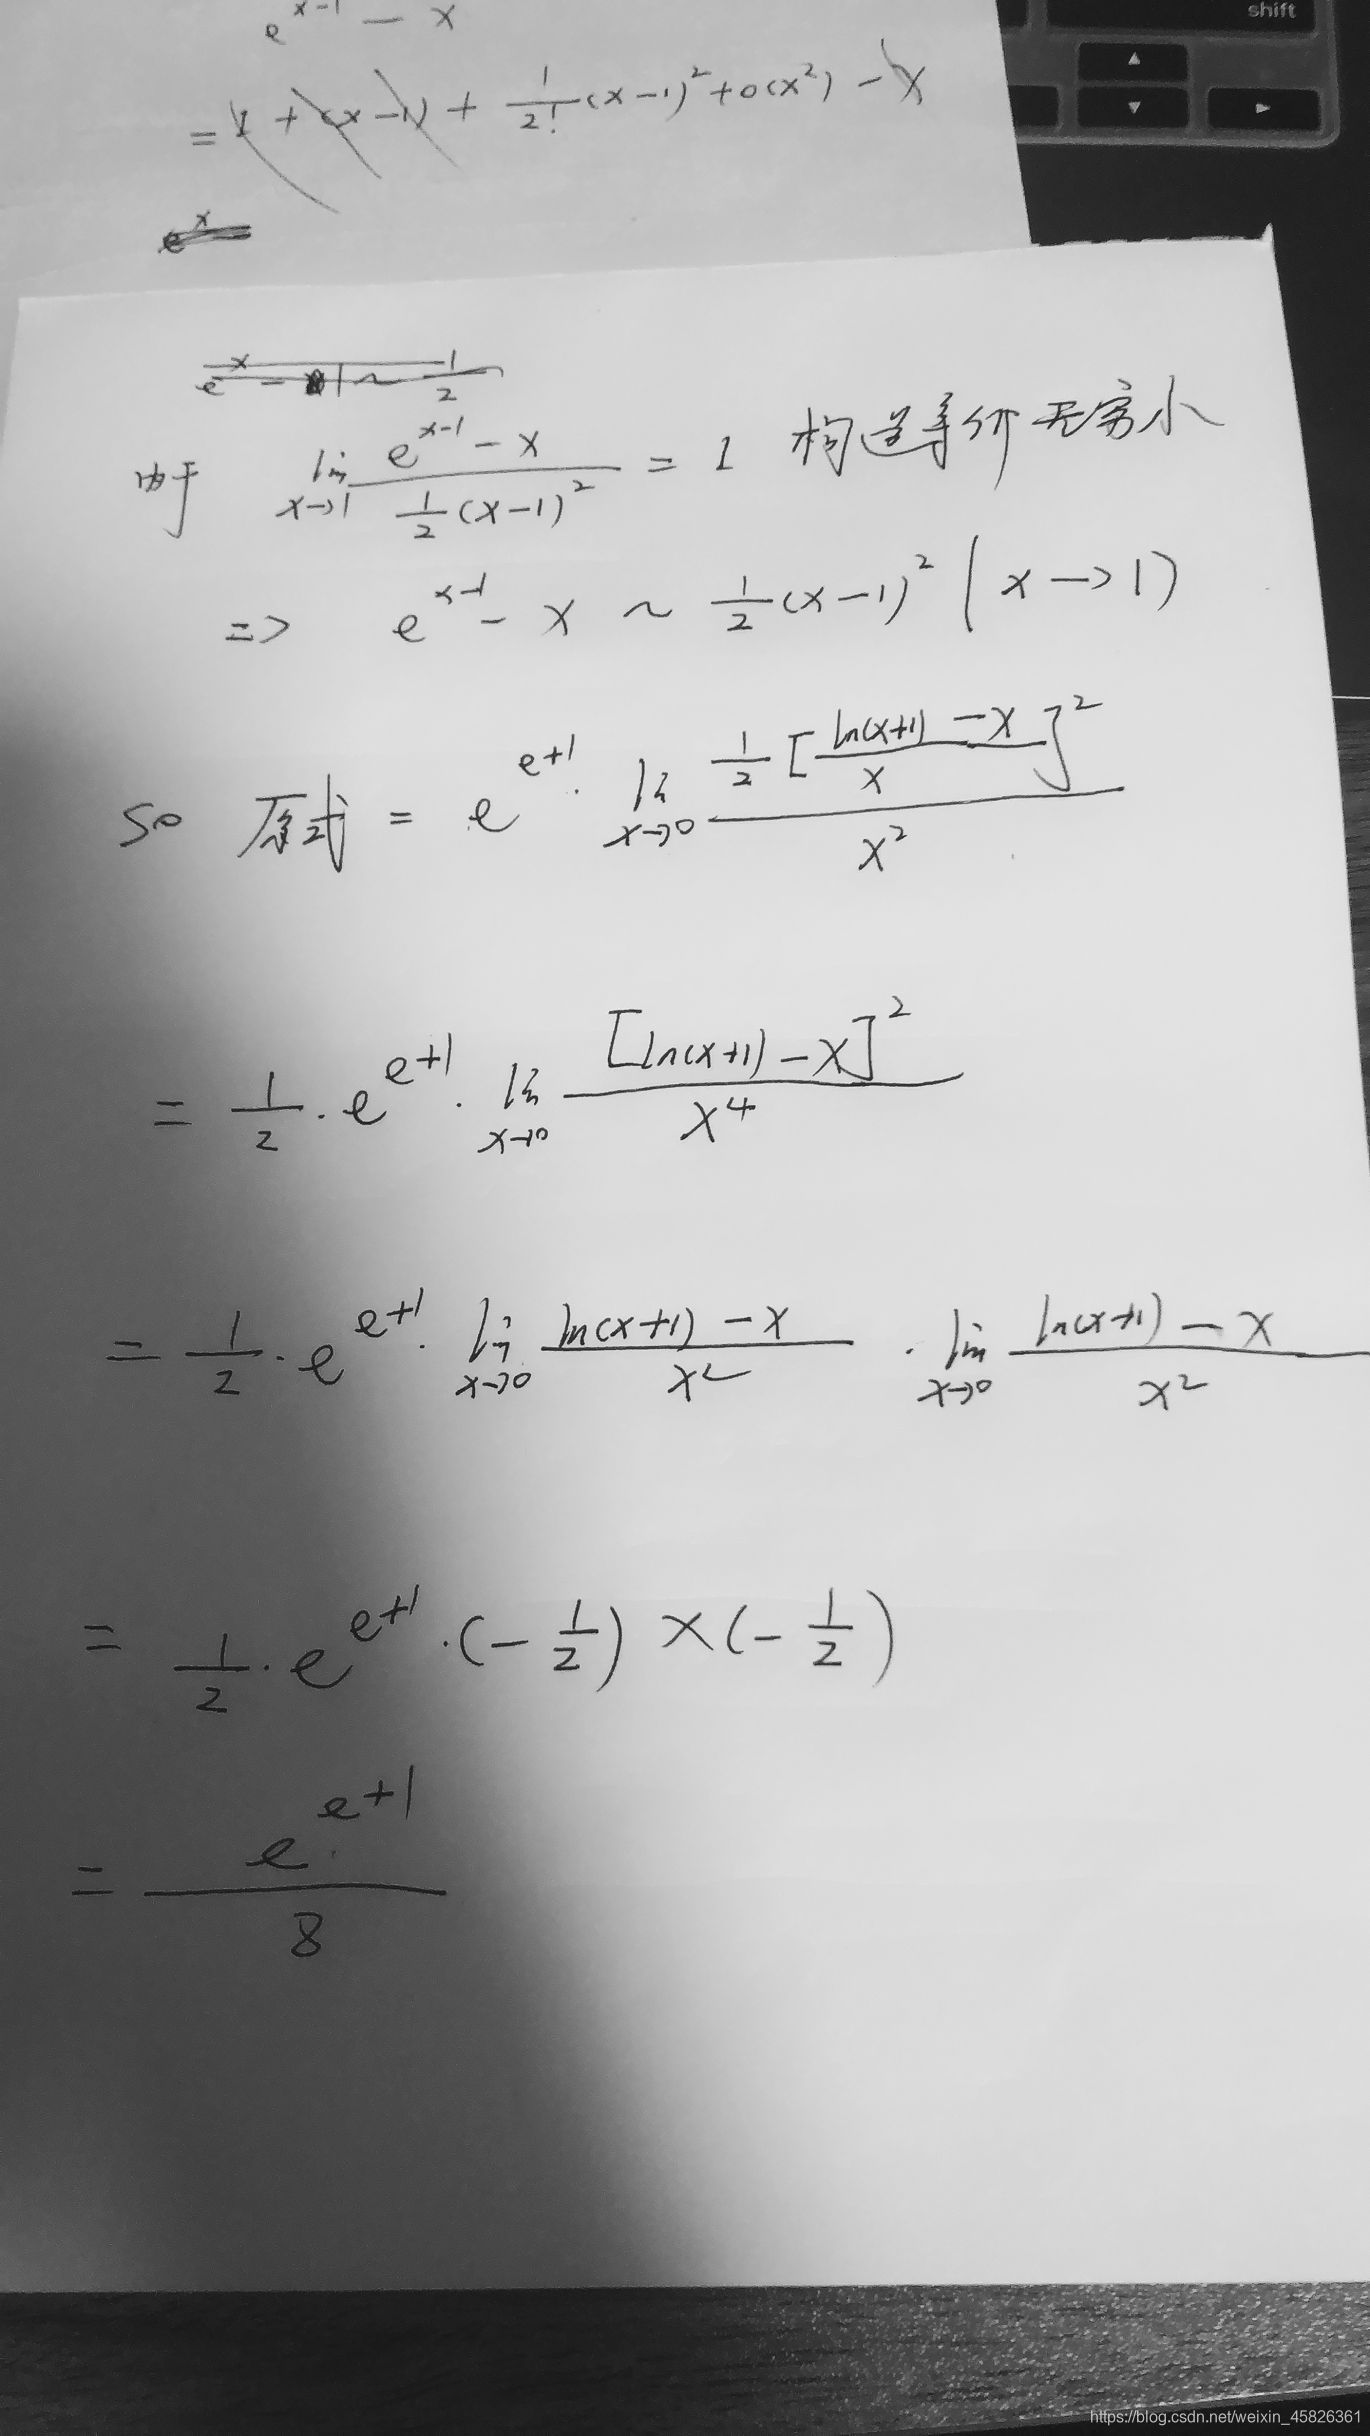 shift
e^{x-1} - x
= 1 + (x-1) + \frac{1}{2!}(x-1)^2 + o(x^2) - x
e^x
e^x - 1 ~ \frac{1}{2}
由于 \lim_{x→1} \frac{e^{x-1} - x}{\frac{1}{2}(x-1)^2} = 1 构造等价无穷小
=> e^{x-1} - x ~ \frac{1}{2}(x-1)^2 (x→1)
so 原式 = e^{e+1} · \lim_{x→0} \frac{\frac{1}{2}[\frac{ln(x+1) - x}{x}]^2}{x^2}
= \frac{1}{2} · e^{e+1} · \lim_{x→0} \frac{[ln(x+1) - x]^2}{x^4}
= \frac{1}{2} · e^{e+1} · \lim_{x→0} \frac{ln(x+1) - x}{x^2} · \lim_{x→0} \frac{ln(x+1) - x}{x^2}
= \frac{1}{2} · e^{e+1} · (-\frac{1}{2}) × (-\frac{1}{2})
= \frac{e^{e+1}}{8}
https://blog.csdn.net/weixin_45826361